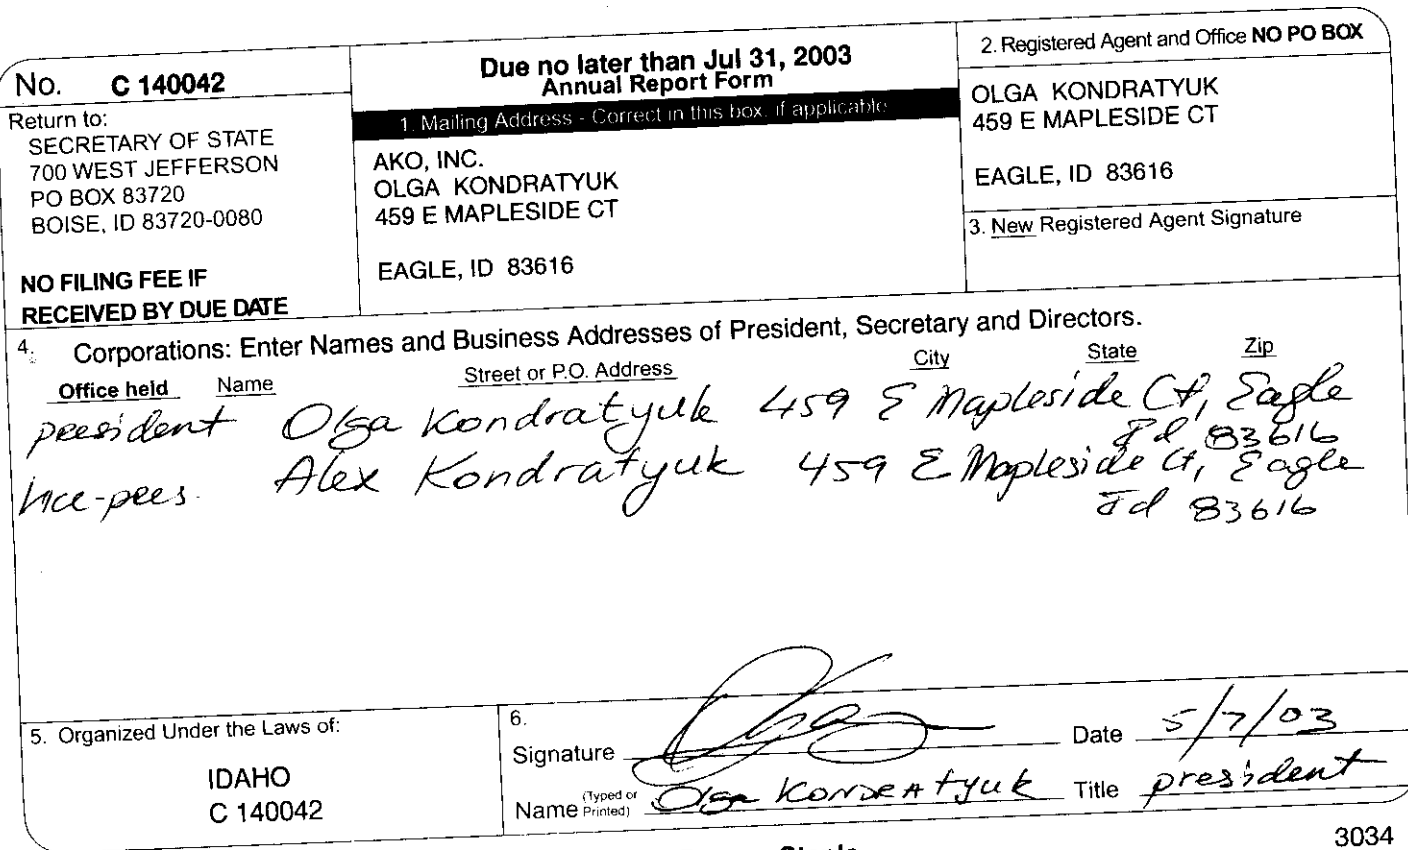 No. C 140042
Return to:
SECRETARY OF STATE
700 WEST JEFFERSON
PO BOX 83720
BOISE, ID 83720-0080
NO FILING FEE IF
RECEIVED BY DUE DATE
Due no later than Jul 31, 2003
Annual Report Form
1. Mailing Address - Correct in this box, if applicable
AKO, INC.
OLGA KONDRATYUK
459 E MAPLESIDE CT
EAGLE, ID 83616
2. Registered Agent and Office NO PO BOX
OLGA KONDRATYUK
459 E MAPLESIDE CT
EAGLE, ID 83616
3. New Registered Agent Signature
4. Corporations: Enter Names and Business Addresses of President, Secretary and Directors.
Office held Name Street or P.O. Address City State Zip
president Olga Kondratyuk 459 E Mapleside Ct, Eagle
Id 83616
Vice-pres. Alex Kondratyuk 459 E Mapleside Ct, Eagle
Id 83616
5. Organized Under the Laws of:
IDAHO
C 140042
6.
Signature Date 5/7/03
Name (Typed or Printed) Olga Kondratyuk Title president
3034